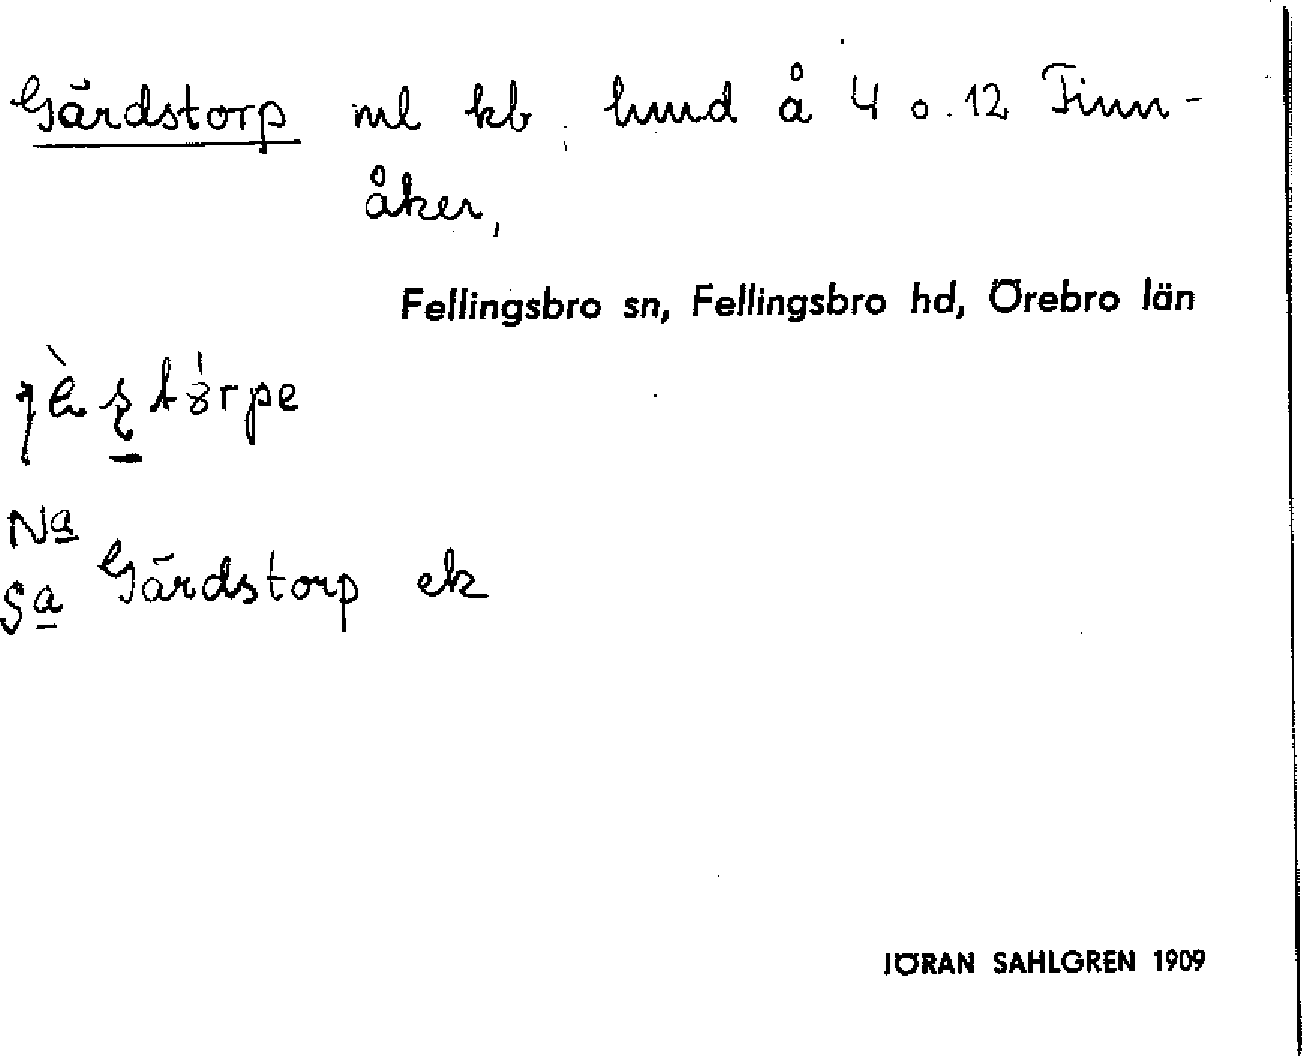 Gärdstorp ml kb hmd å 4 o. 12 Finn-
åker,
Fellingsbro sn, Fellingsbro hd, Örebro län
Na
Sa Gärdstorp ek
JÖRAN SAHLGREN 1909